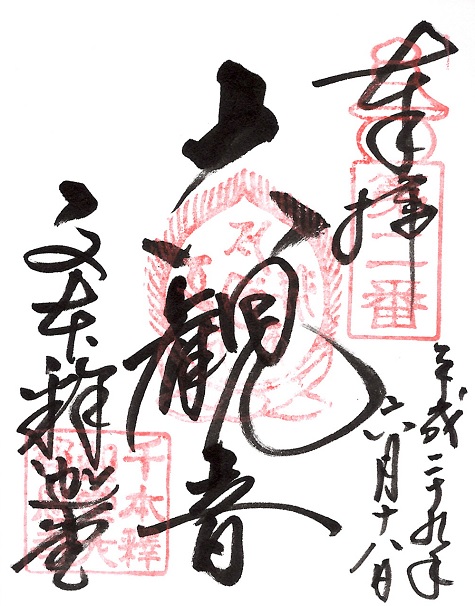 奉拝
第二番
平成二十九年
六月十八日
六観音
千本釋迦堂
千本釋